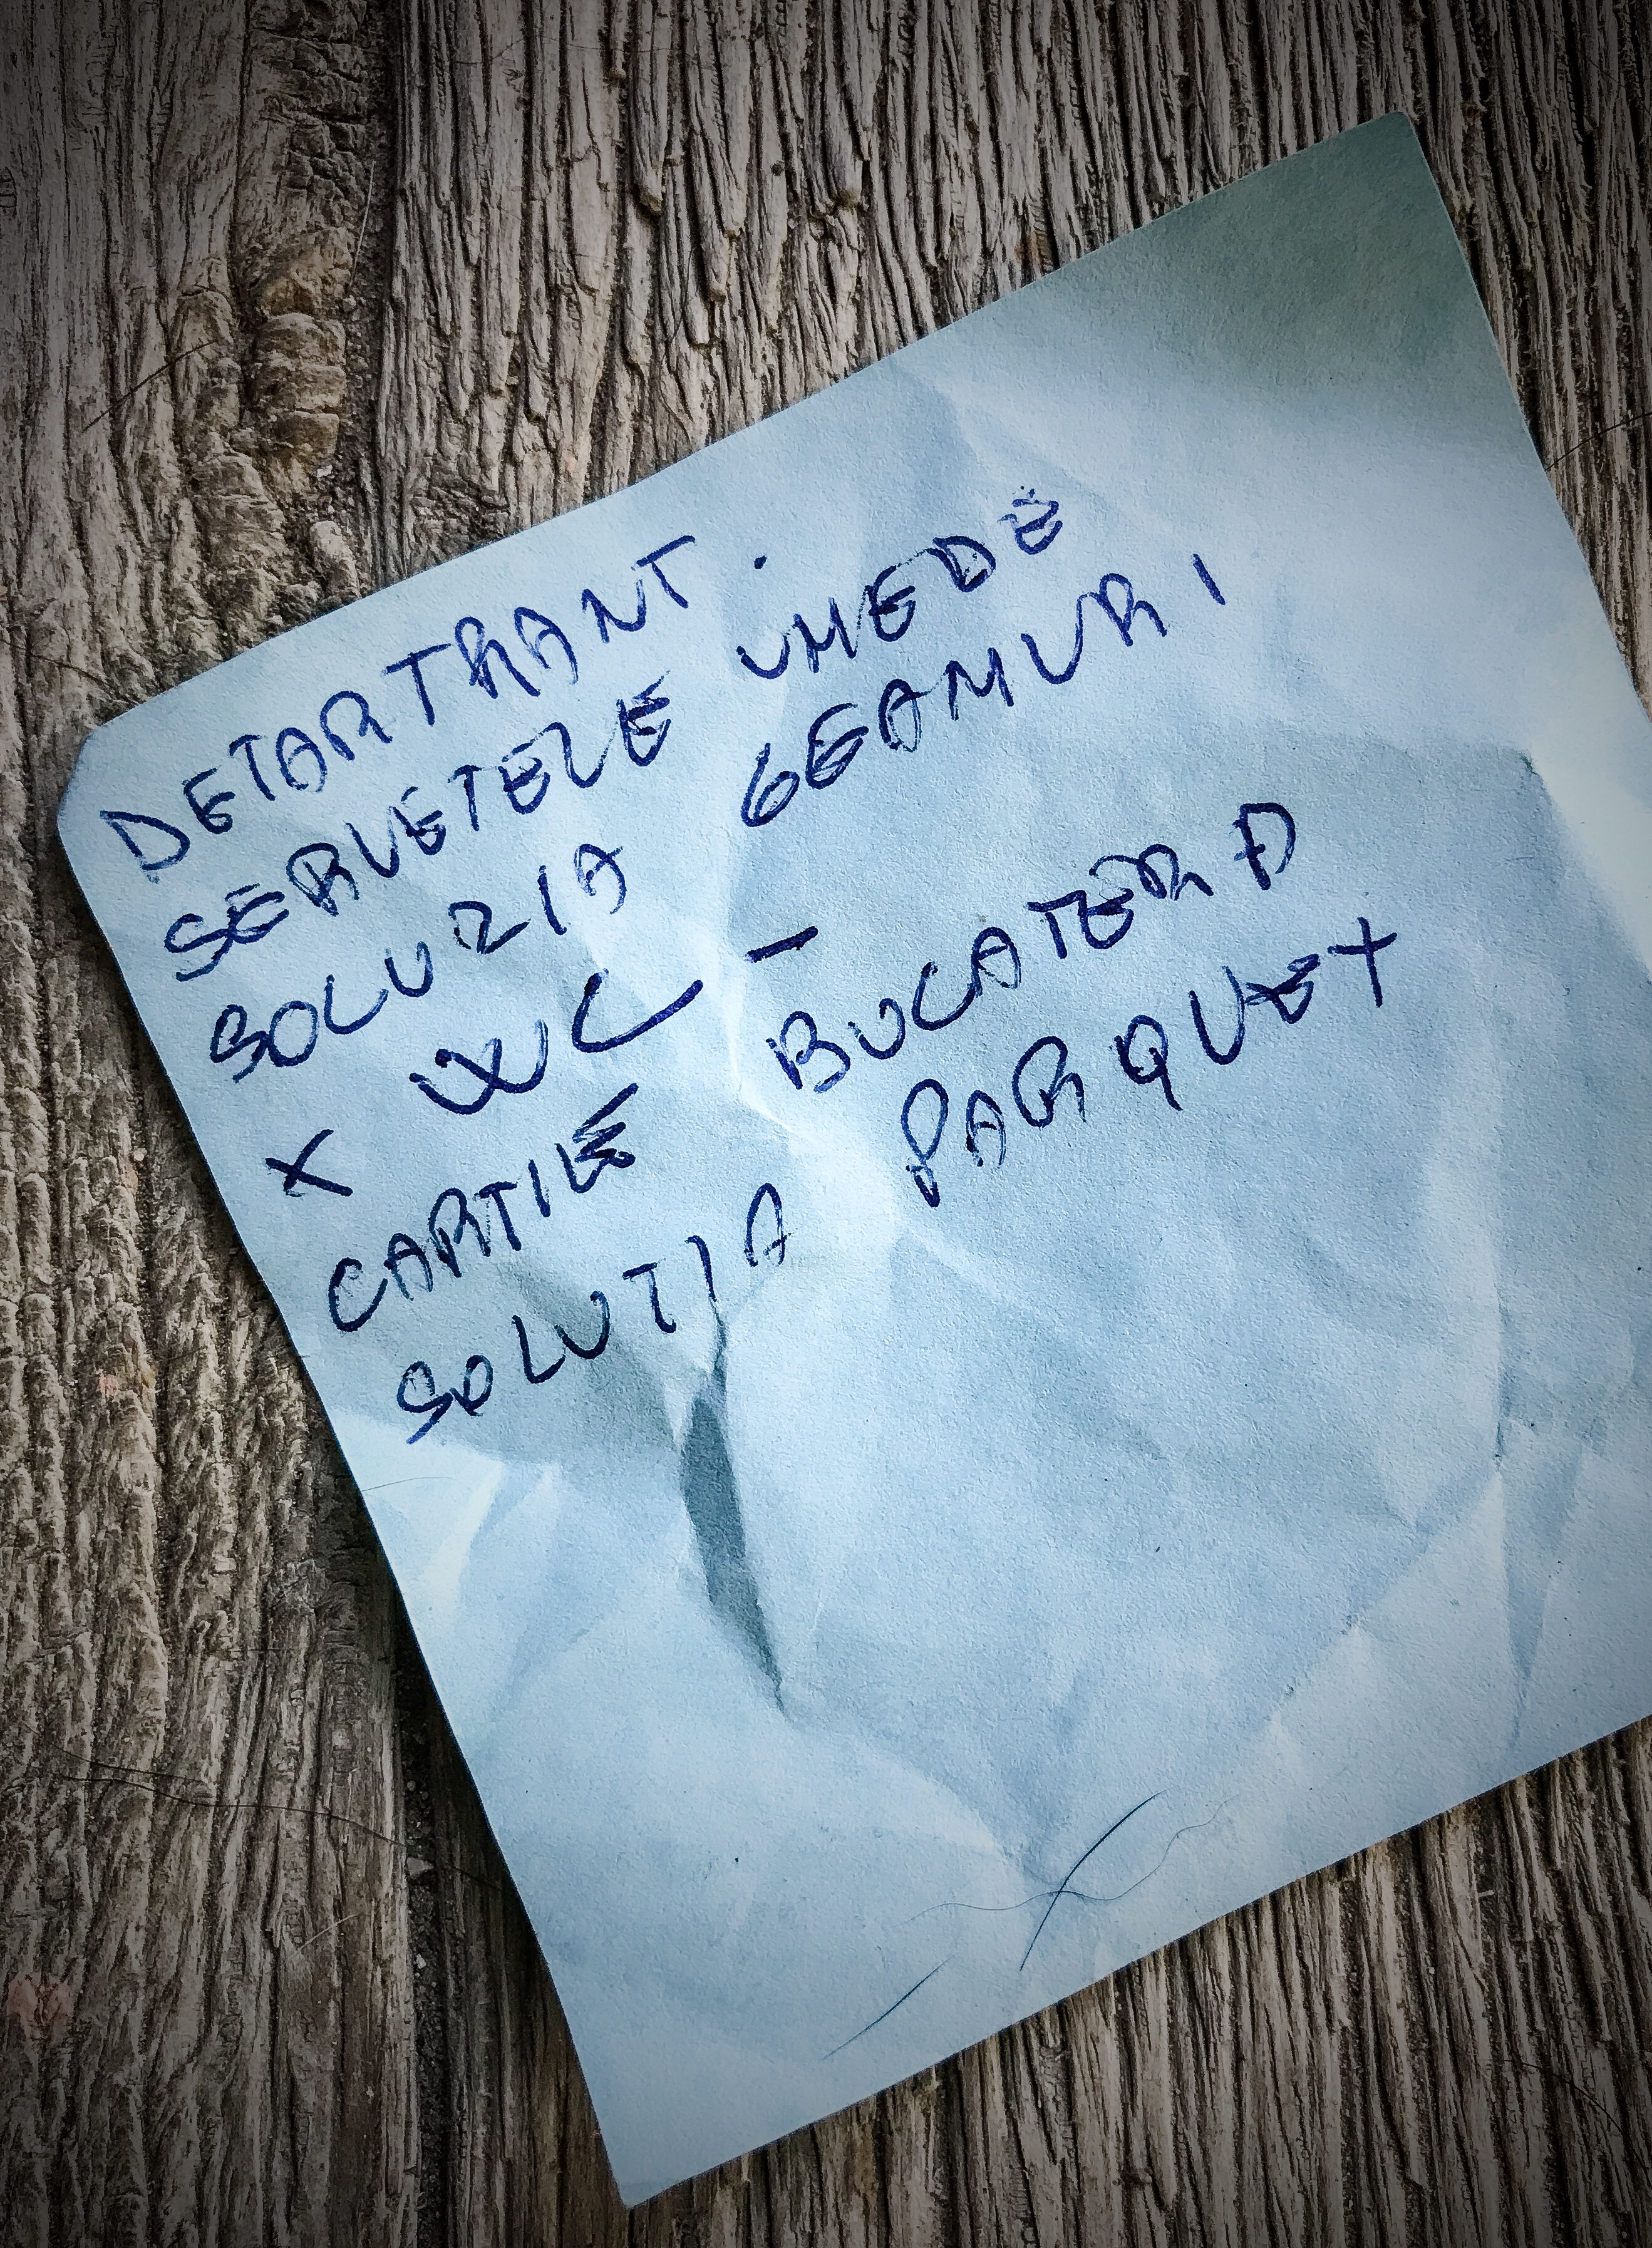 DETARTRANT.
SERVETELE UMEDE
SOLUZIA GEAMURI
X WC -
CARTIE BUCATERA
SOLUTIA PARQUET